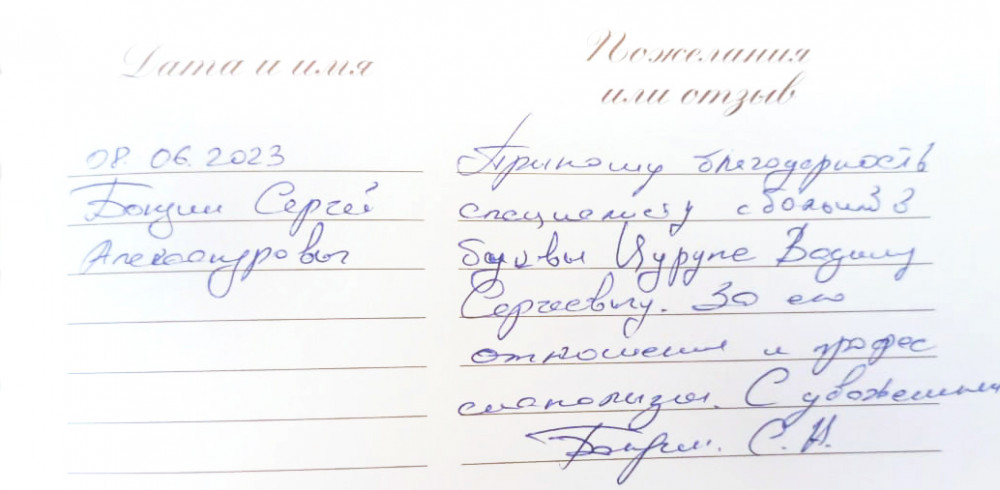 Дата и имя
Пожелания
или отзыв
08.06.2023
Сергей
Александрович
Приношу благодарность
специалисту с большой
буквы Цурупе Вадиму
Сергеевичу. За его
отношение и профес
сионализм. С уважением
С. А.